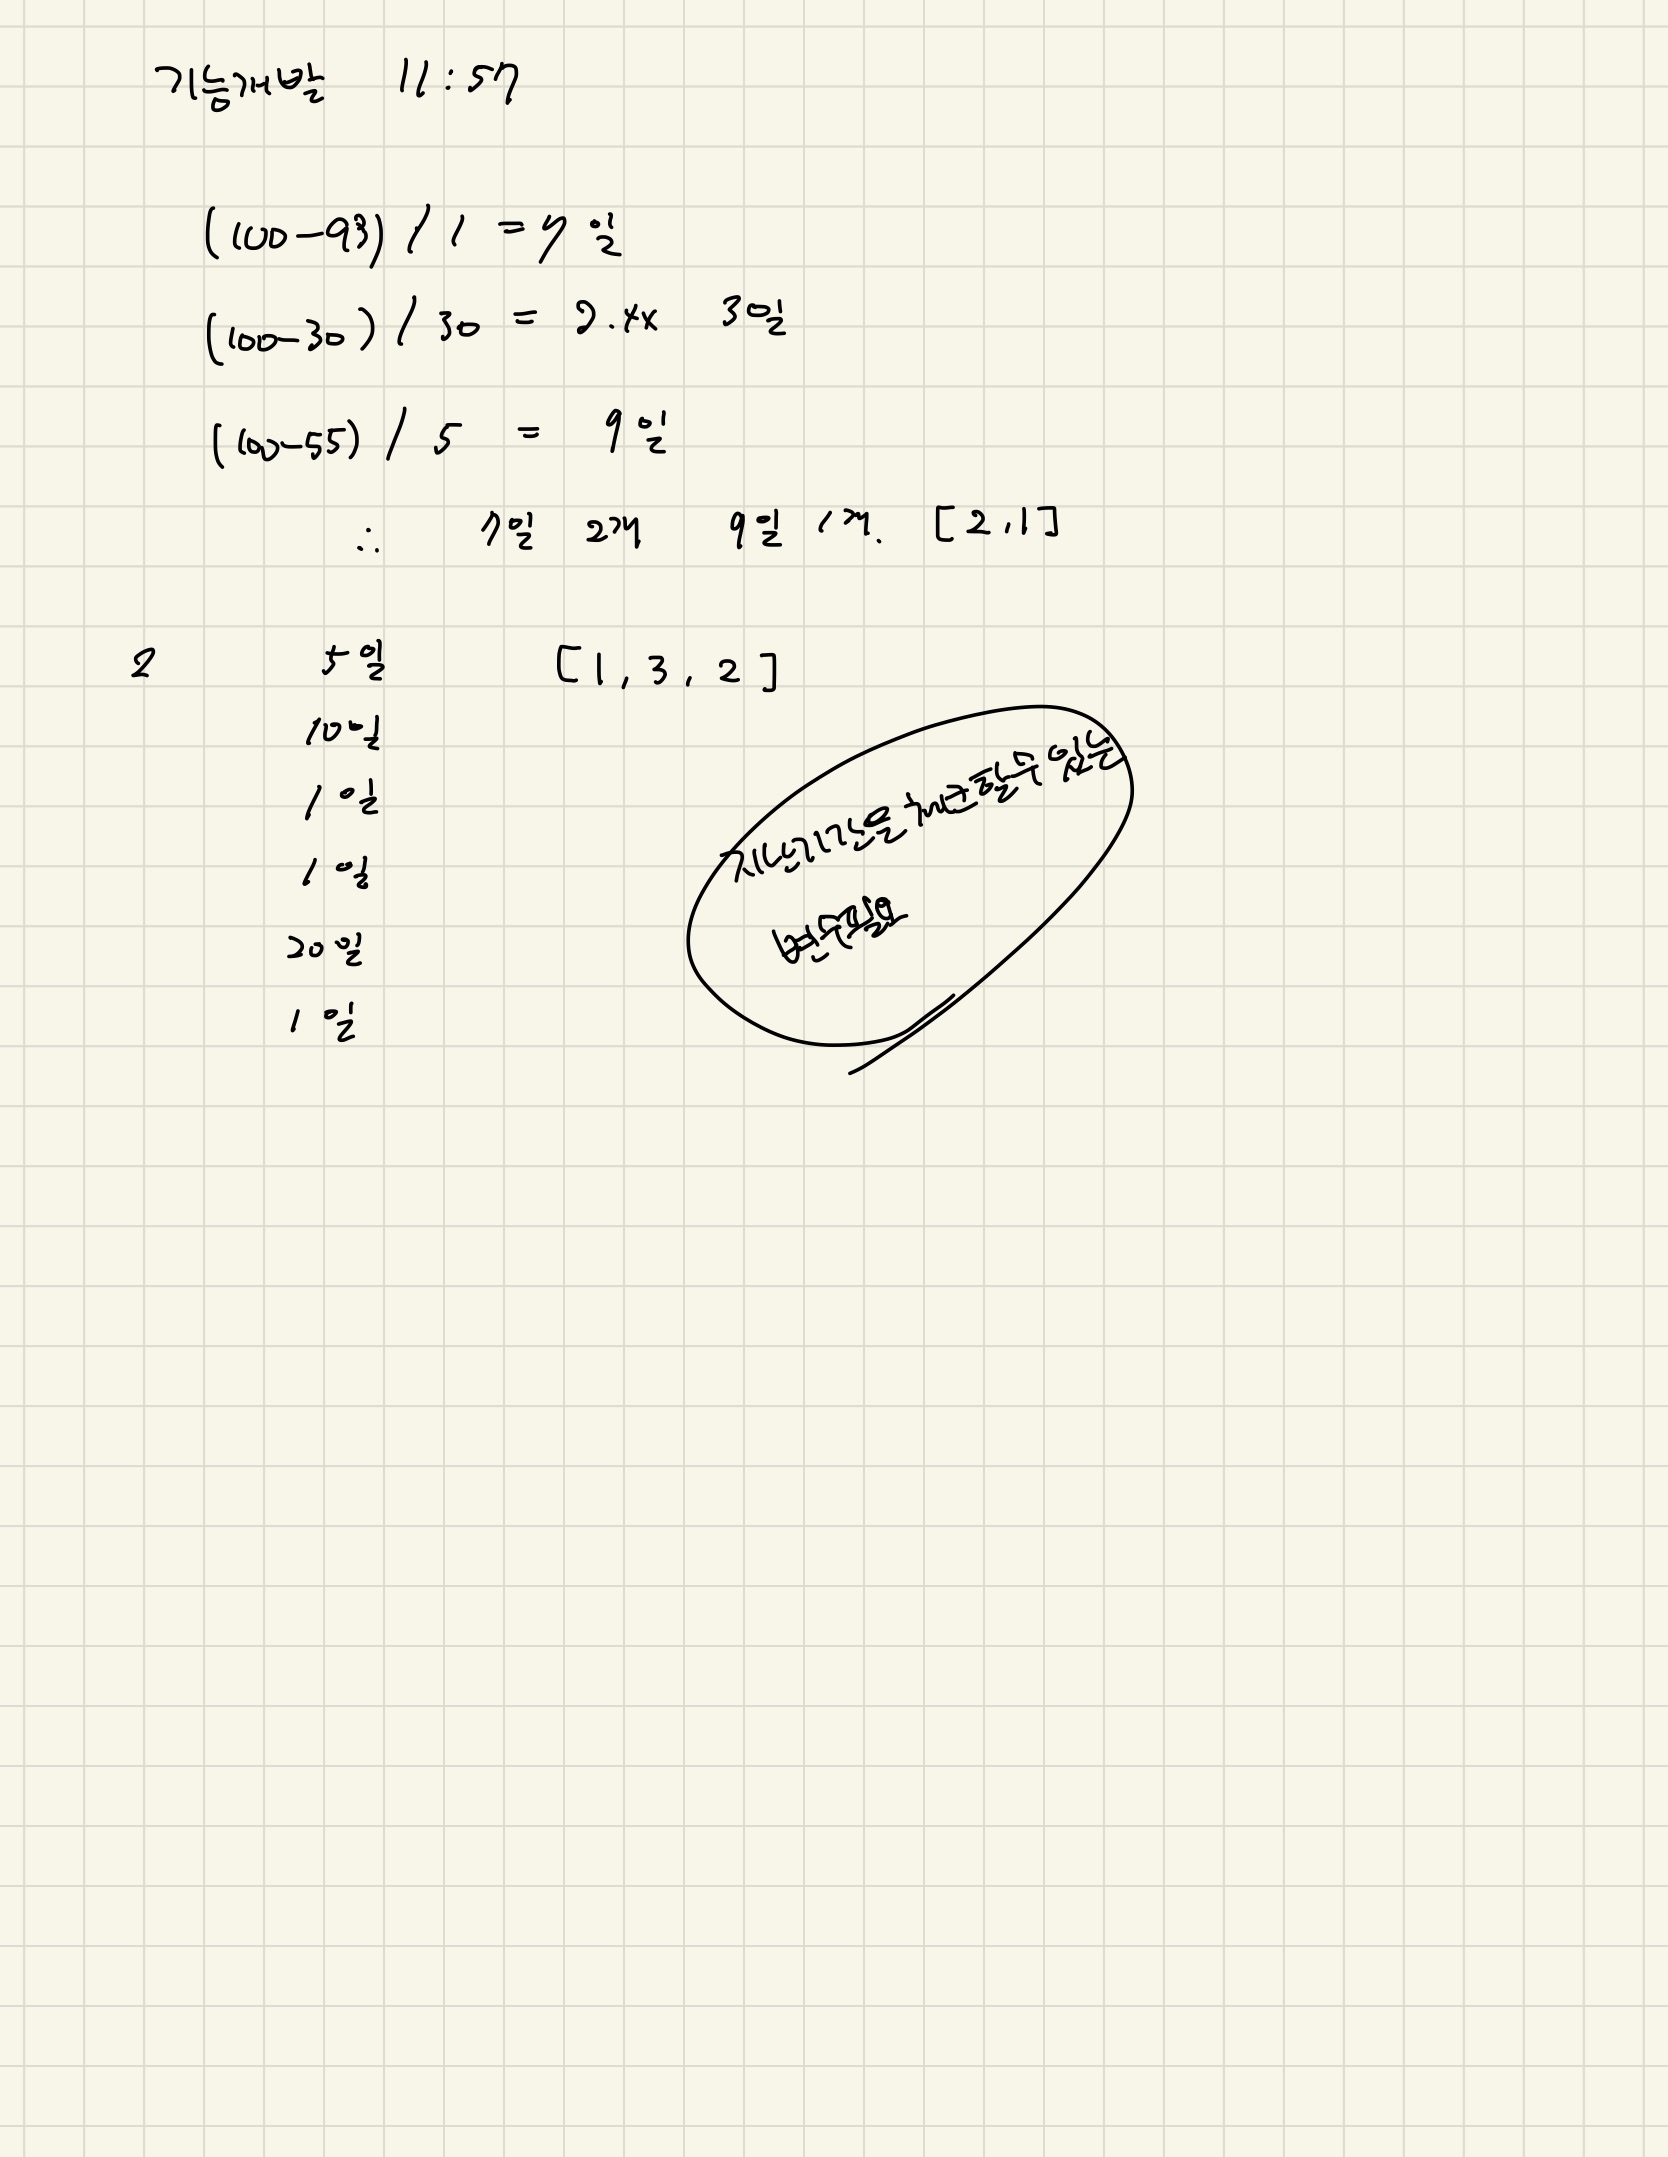 기능개발 11:57
(100-93) / 1 = 7일
(100-30) / 30 = 2.xx 3일
(100-55) / 5 = 9일
∴ 7일 2개 9일 1개. [2,1]
2 5일 [1, 3, 2]
10일
1일
1일
20일
1일
지난기간을 체크할수 있는
변수필요